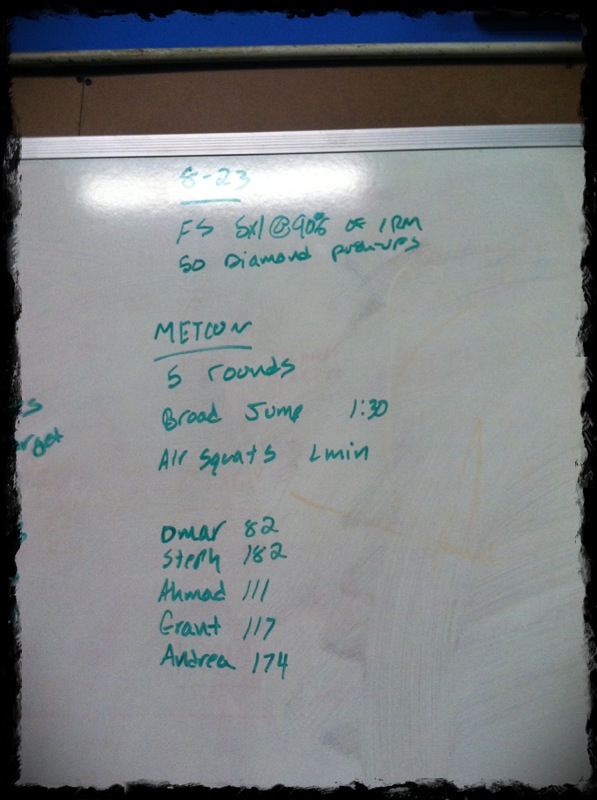 8-23
FS 5x1 @ 90% OF 1RM
50 Diamond push-ups
METCON
5 rounds
Broad Jump 1:30
Air Squats 1min
Omar 82
Steph 182
Ahmad 111
Grant 117
Andrea 174